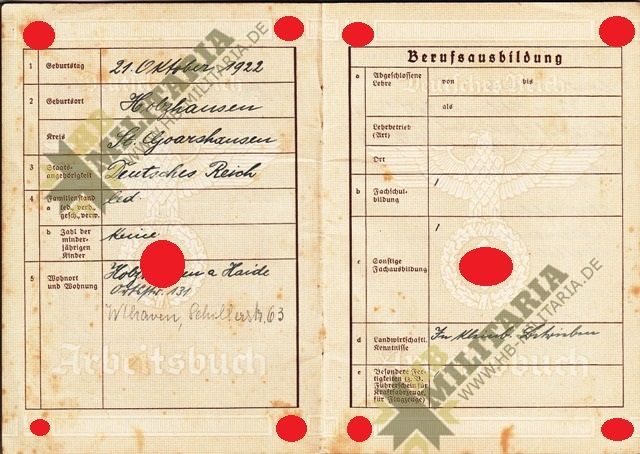 1 Geburtstag 21. Oktober 1922
2 Geburtsort Holzhausen
Kreis St. Goarshausen
3 Staats-
angehörigkeit Deutsches Reich
4 Familienstand
a led., verh.,
gesch., verw. led.
b Zahl der
minder-
jährigen
Kinder keine
5 Wohnort
und Wohnung a Haide
131
W'haven, Schillerstr. 63
Arbeitsbuch
HB MILITARIA
WWW.HB-MILITARIA.DE
Berufsausbildung
Deutsches Reich
a Abgeschlossene
Lehre von bis
als
Lehrbetrieb
(Art)
Ort
b Fachschul-
bildung /
c Sonstige
Fachausbildung /
d Landwirtschaftl.
Kenntnisse In kleinb.
e Besondere Fer-
tigkeiten (z. B.
Führerschein für
Kraftfahrzeuge,
für Flugzeuge)
Arbeitsbuch
HB MILITARIA
WWW.HB-MILITARIA.DE